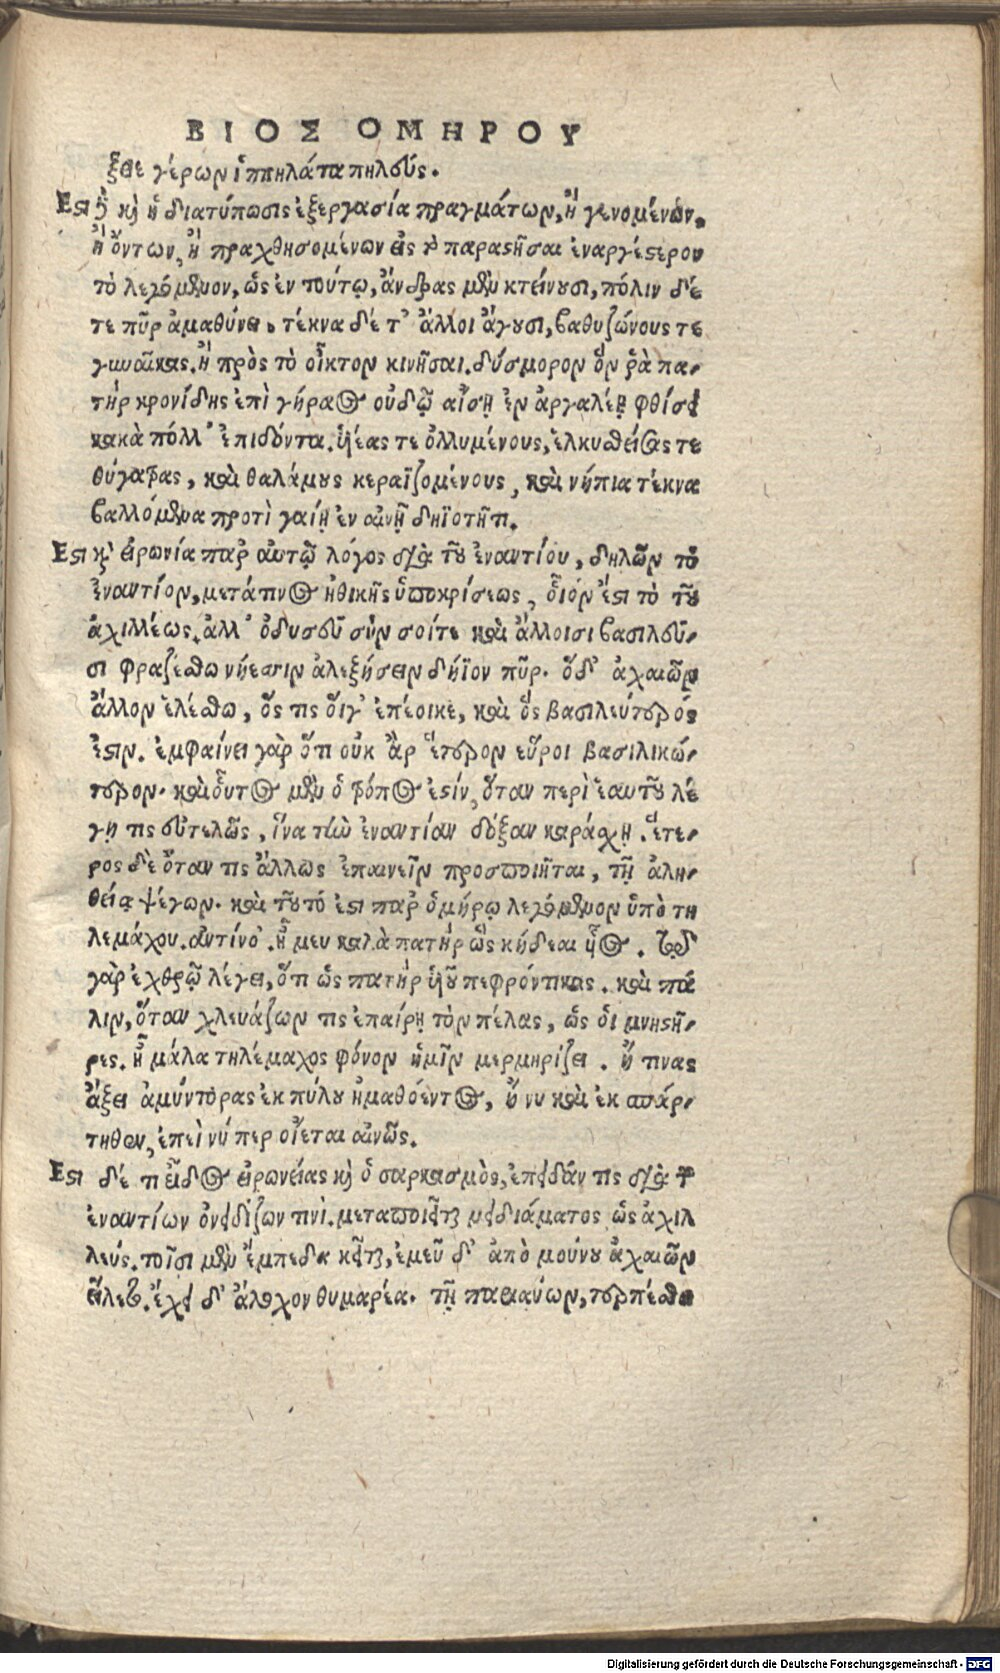 ΒΙΟΣ ΟΜΗΡΟΥ
ξειε γέρων ἱππηλάτα πηλεύς.
Εστι δὲ καὶ ἡ διατύπωσις ἐξεργασία πραγμάτων, ἢ γενομένων,
ἢ ὄντων, ἢ πραχθησομένων εἰς τὸ παραστῆσαι ἐναργέστερον
τὸ λεγόμενον, ὡς ἐν τούτῳ, ἄνδρας μὲν κτείνουσι, πόλιν δέ
τε πῦρ ἀμαθύνει. τέκνα δέ τ' ἄλλοι ἄγουσι, βαθυζώνους τε
γυναῖκας. ἢ πρὸς τὸ οἶκτον κινῆσαι. δύσμορον ὅν ῥὰ πα-
τὴρ κρονίδης ἐπὶ γήραος οὐδῷ αἴσῃ ἐν ἀργαλέῃ φθίσει
κακὰ πόλλ' ἐπιδόντα. ἡέας τε ὀλλυμένους, ἑλκυθείσας τε
θύγατρας, καὶ θαλάμους κεραϊζομένους, καὶ νήπια τέκνα
βαλλόμενα προτὶ γαίῃ ἐν αἰνῇ δηϊοτῆτι.
Εστι καὶ εἰρωνία παρ' αὐτῷ λόγος διὰ τοῦ ἐναντίου, δηλῶν τὸ
ἐναντίον, μετά τινος ἠθικῆς ὑποκρίσεως, οἷόν ἐστι τὸ τοῦ
ἀχιλλέως. ἀλλ' ὀδυσεῦ σύν σοίτε καὶ ἄλλοισι βασιλεῦ-
σι φραζέσθω νήεσσιν ἀλεξήσειν δήϊον πῦρ. ὅδ' ἀχαιῶν
ἄλλον ἑλέσθω, ὅς τις οἷγ' ἐπέοικε, καὶ ὃς βασιλεύτερός
ἐστιν. ἐμφαίνει γὰρ ὅτι οὐκ ἂν ἕτερον εὕροι βασιλικώ-
τερον. καὶ οὗτος μὲν ὁ τρόπος ἐστίν, ὅταν περὶ ἑαυτοῦ λέ
γῃ τις εὐτελῶς, ἵνα τὴν ἐναντίαν δόξαν καράσχῃ. ἕτε-
ρος δὲ ὅταν τις ἄλλως ἐπαινεῖν προσποιῆται, τῇ ἀλη-
θείᾳ ψέγων. καὶ τοῦτό ἐστι παρ' ὁμήρῳ λεγόμενον ὑπὸ τη
λεμάχου. ἀντίνο'. ἦ μευ καλὰ πατὴρ ὣς κήδεαι ἧος. τῷ
γὰρ ἐχθρῷ λέγει, ὅτι ὡς πατὴρ ἡοῦ πεφρόντικας. καὶ πά
λιν, ὅταν χλευάζων τις ἐπαίρῃ τὸν πέλας, ὡς ὁι μνηστῆ-
ρες. ἦ μάλα τηλέμαχος φόνον ἡμῖν μερμηρίζει. ἤ τινας
ἄξει ἀμύντορας ἐκ πύλου ἠμαθόεντος, ἤ νυ καὶ ἐκ σπάρ-
τηθεν, ἐπεὶ νύ περ οἴεται αἰνῶς.
Εστι δέ τι εἶδος εἰρωνείας καὶ ὁ σαρκασμὸς, ἐπειδάν τις διὰ τῶν
ἐναντίων ὀνειδίζων τινὶ. μεταποιεῖται μειδιάματος ὡς ἀχιλ
λεύς. τοῖσι μὲν ἔμπεδα κεῖται, ἐμεῦ δ' ἀπὸ μούνου ἀχαιῶν
εἵλετο. ἔχει δ' ἄλοχον θυμαρέα. τῇ παριαύων, τερπέσθω